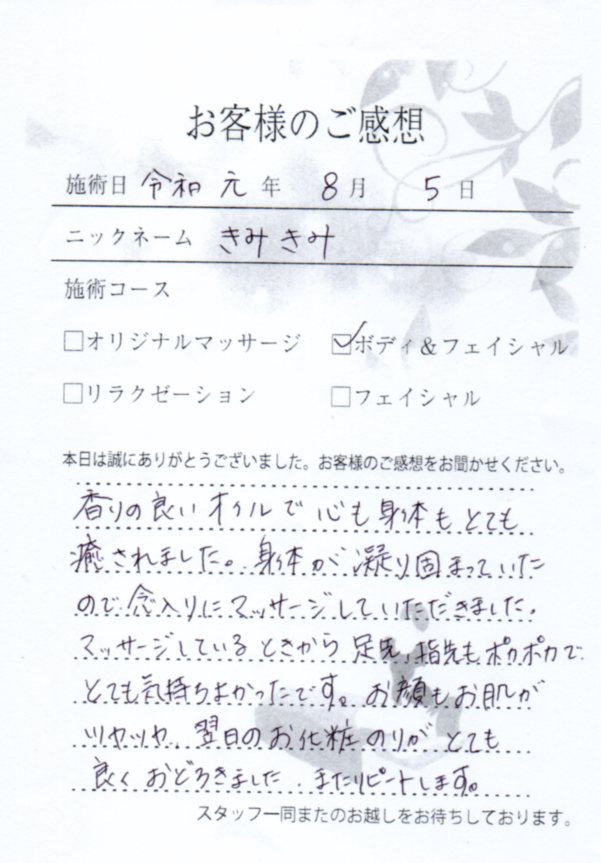 お客様のご感想
施術日 令和 元 年 8 月 5 日
ニックネーム きみきみ
施術コース
□オリジナルマッサージ ☑ボディ&フェイシャル
□リラクゼーション □フェイシャル
本日は誠にありがとうございました。お客様のご感想をお聞かせください。
香りの良いオイルで心も身体もとても
癒されました。身体が凝り固まっていた
ので念入りにマッサージしていただきました。
マッサージしているときから足先、指先もポカポカで
とても気持ちよかったです。お顔もお肌が
ツヤツヤ、翌日のお化粧のりがとても
良くおどろきました。またリピートします。
スタッフ一同またのお越しをお待ちしております。